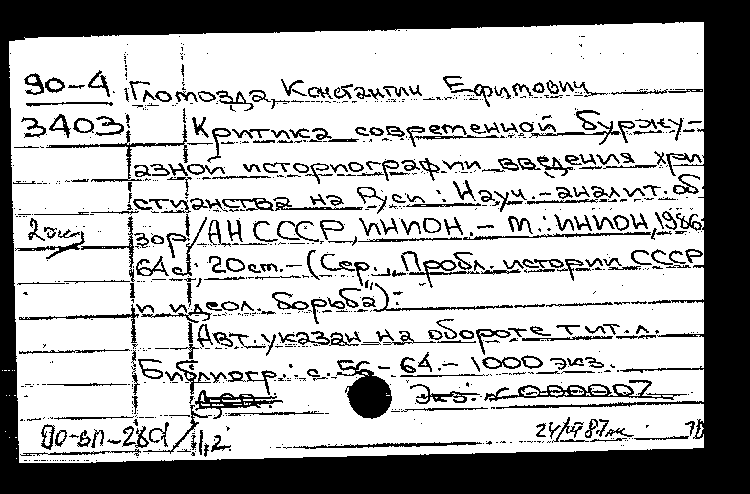 90-4 Гломозда, Константин Ефимович
3403 Критика современной буржу-
азной историографии введения хри
стианства на Руси : Науч.-аналит. об
2 экз зор / АН СССР, ИНИОН. – М. : ИНИОН, 1986
64 с ; 20 см. – (Сер. „Пробл. истории СССР
и идеол. борьба") :
Авт. указан на обороте тит. л.
Библиогр. : с. 56 – 64. – 1000 экз.
Экз: № 000007
1,2